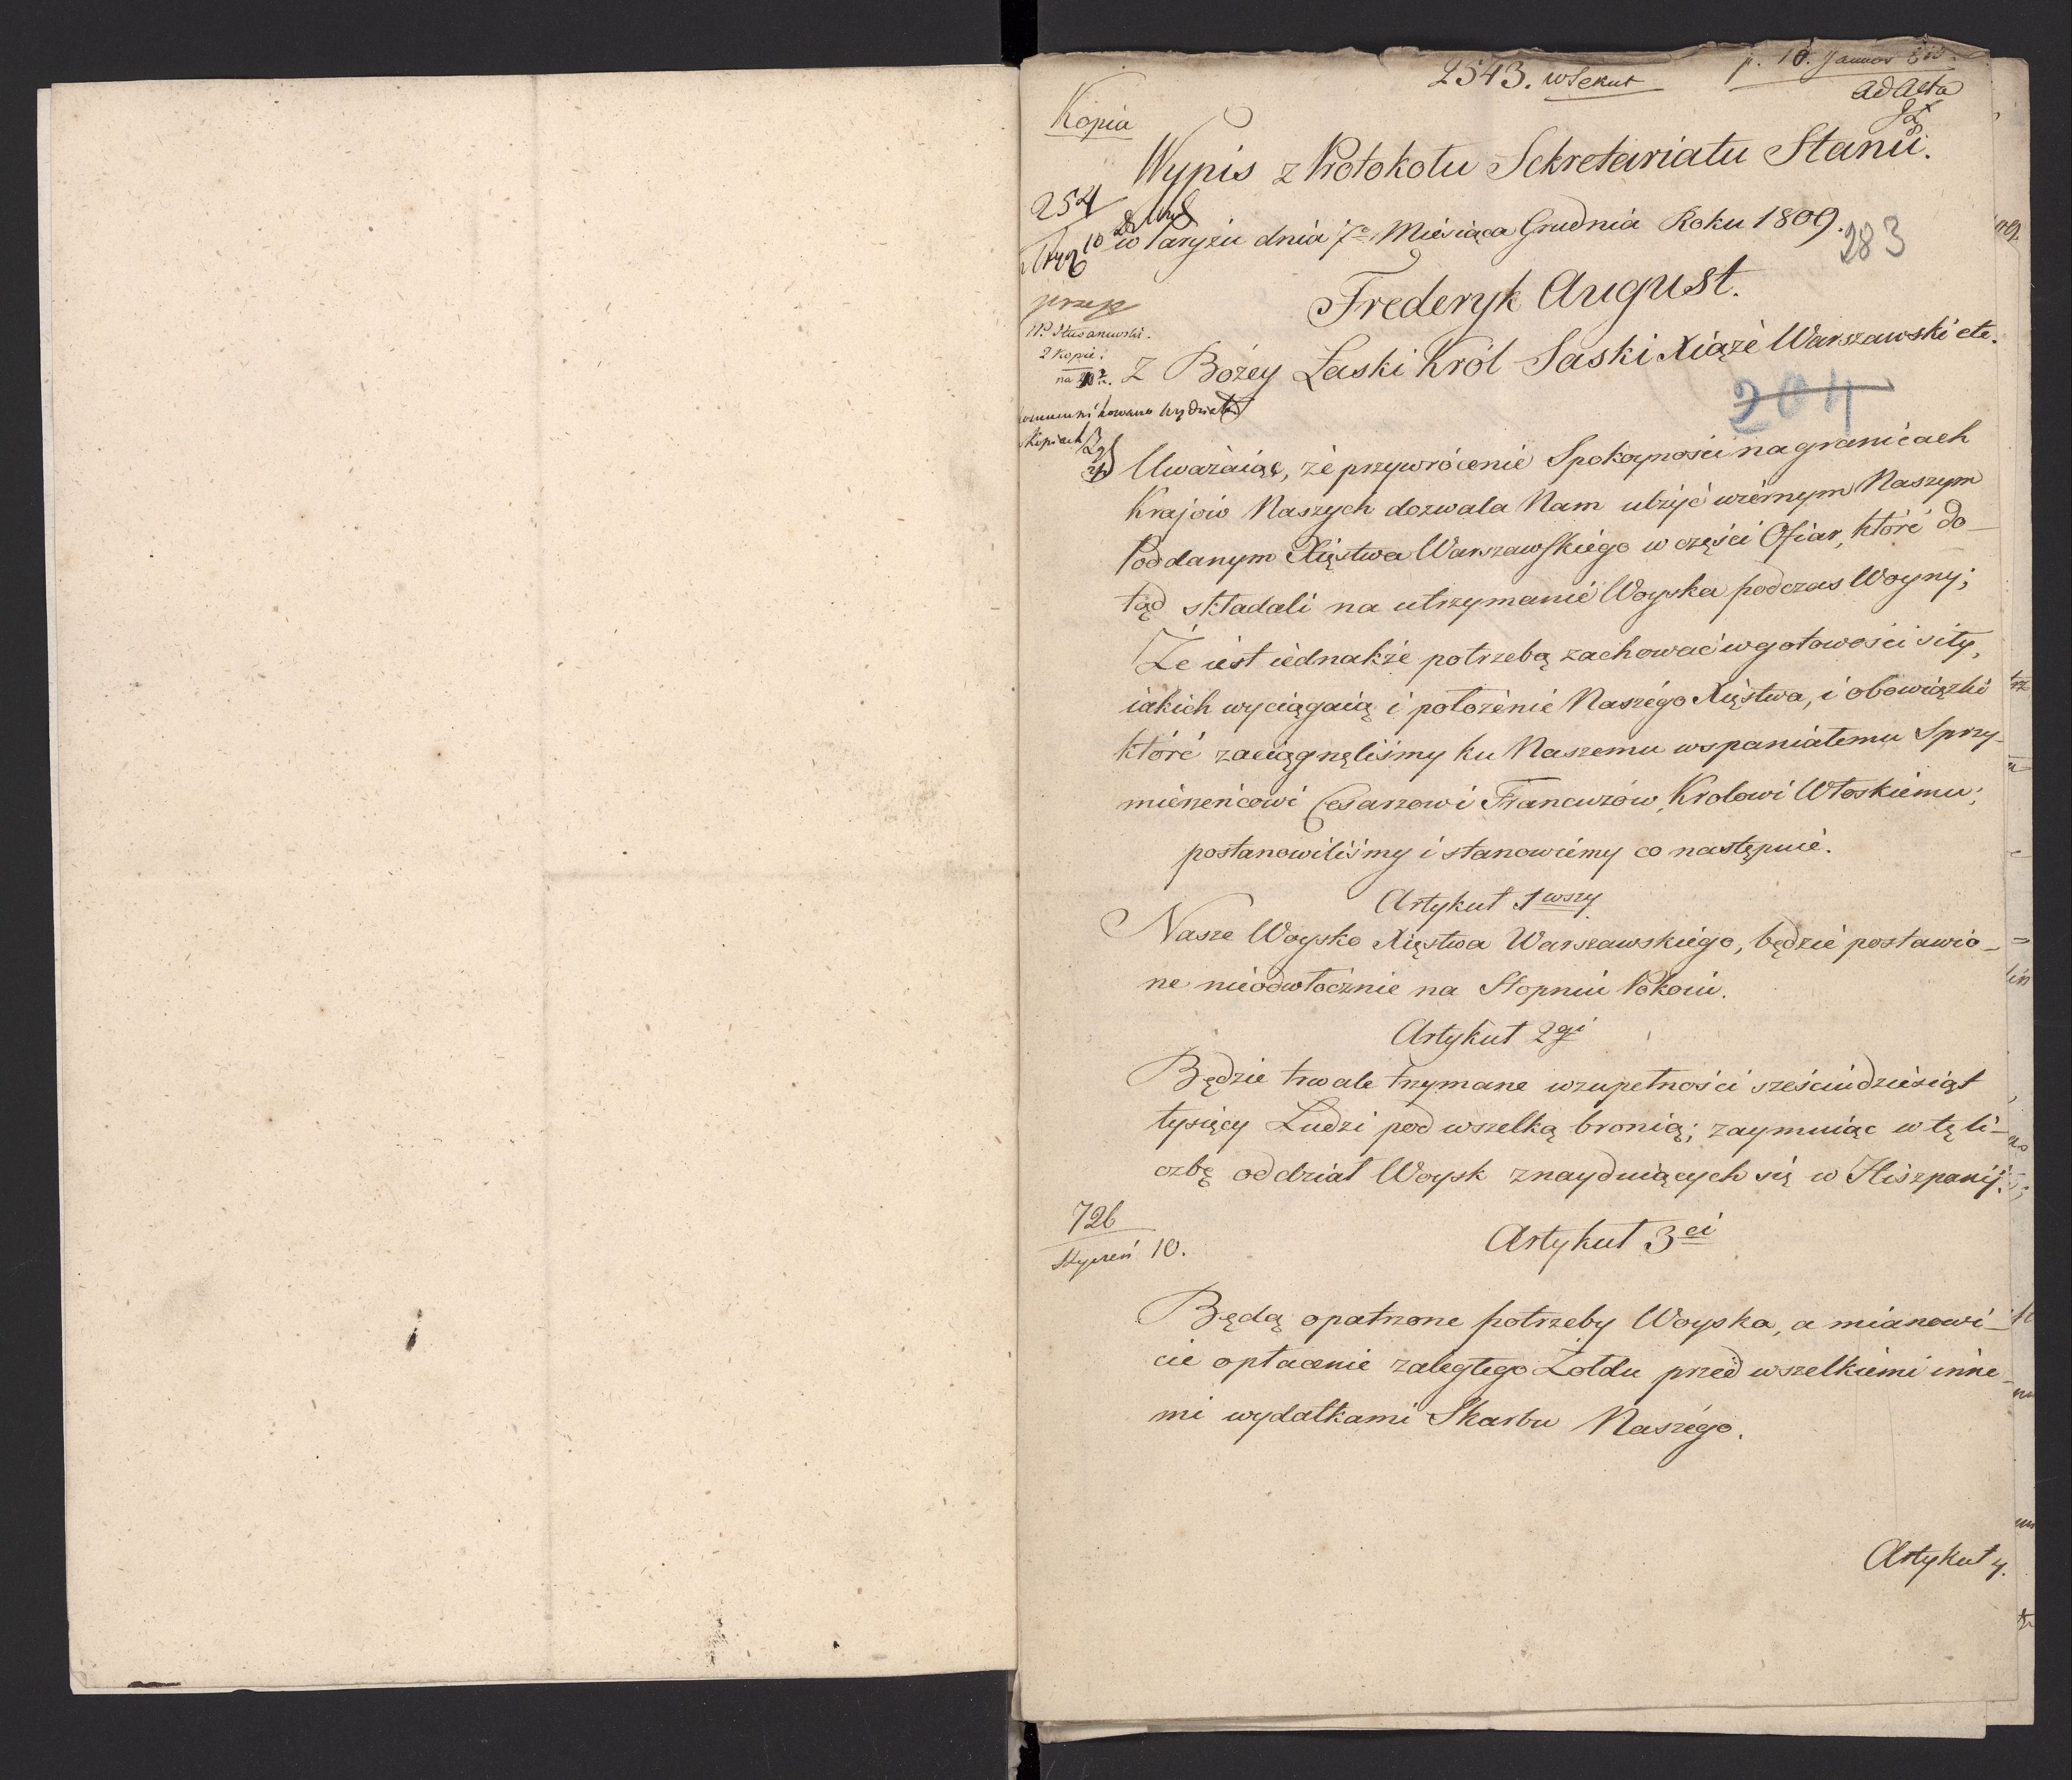 2543. wSekut
p. 10. Januar
ad acta
Kopia
Wypis z Protokołu Sekretariatu Stanu.
254
10
w Paryżu dnia 7º Miesiąca Grudnia Roku 1809.
283
Frederyk August.
2 Kopie.
Z Bożey Łaski Król Saski Xiąże Warszawski etc.
204
Uważaiąc, że przywrócenie Spokoyności na granicach
Krajów Naszych dozwala Nam ulżyć wiernym Naszym
Poddanym Xięstwa Warszawskiego w części Ofiar, które do-
tąd składali na utrzymanie Woyska podczas Woyny;
Że iest iednakże potrzebą zachować w gotowości siły,
iakich wyciągaią i położenie Naszego Xięstwa, i obowiązki
które zaciągnęliśmy ku Naszemu wspaniałemu Sprzy-
mierzeńcowi Cesarzowi Francuzów, Królowi Włoskiemu;
postanowiliśmy i stanowiemy co następuie.
Artykuł 1wszy
Nasze Woysko Xięstwa Warszawskiego, będzie postawio-
ne nieodwłocznie na Stopniu Pokoiu.
Artykuł 2gi
Będzie trwale trzymane w zupełności sześćdziesiąt
tysięcy Ludzi pod wszelką bronią; zaymuiąc w tę li-
czbę oddział Woysk znayduiących się w Hiszpanij.
726
Styczeń 10.
Artykuł 3ci
Będą opatrzone potrzeby Woyska, a mianowi-
cie opłacenie zaległego Żołdu przed wszelkiemi inne-
mi wydatkami Skarbu Naszego.
Artykuł 4.